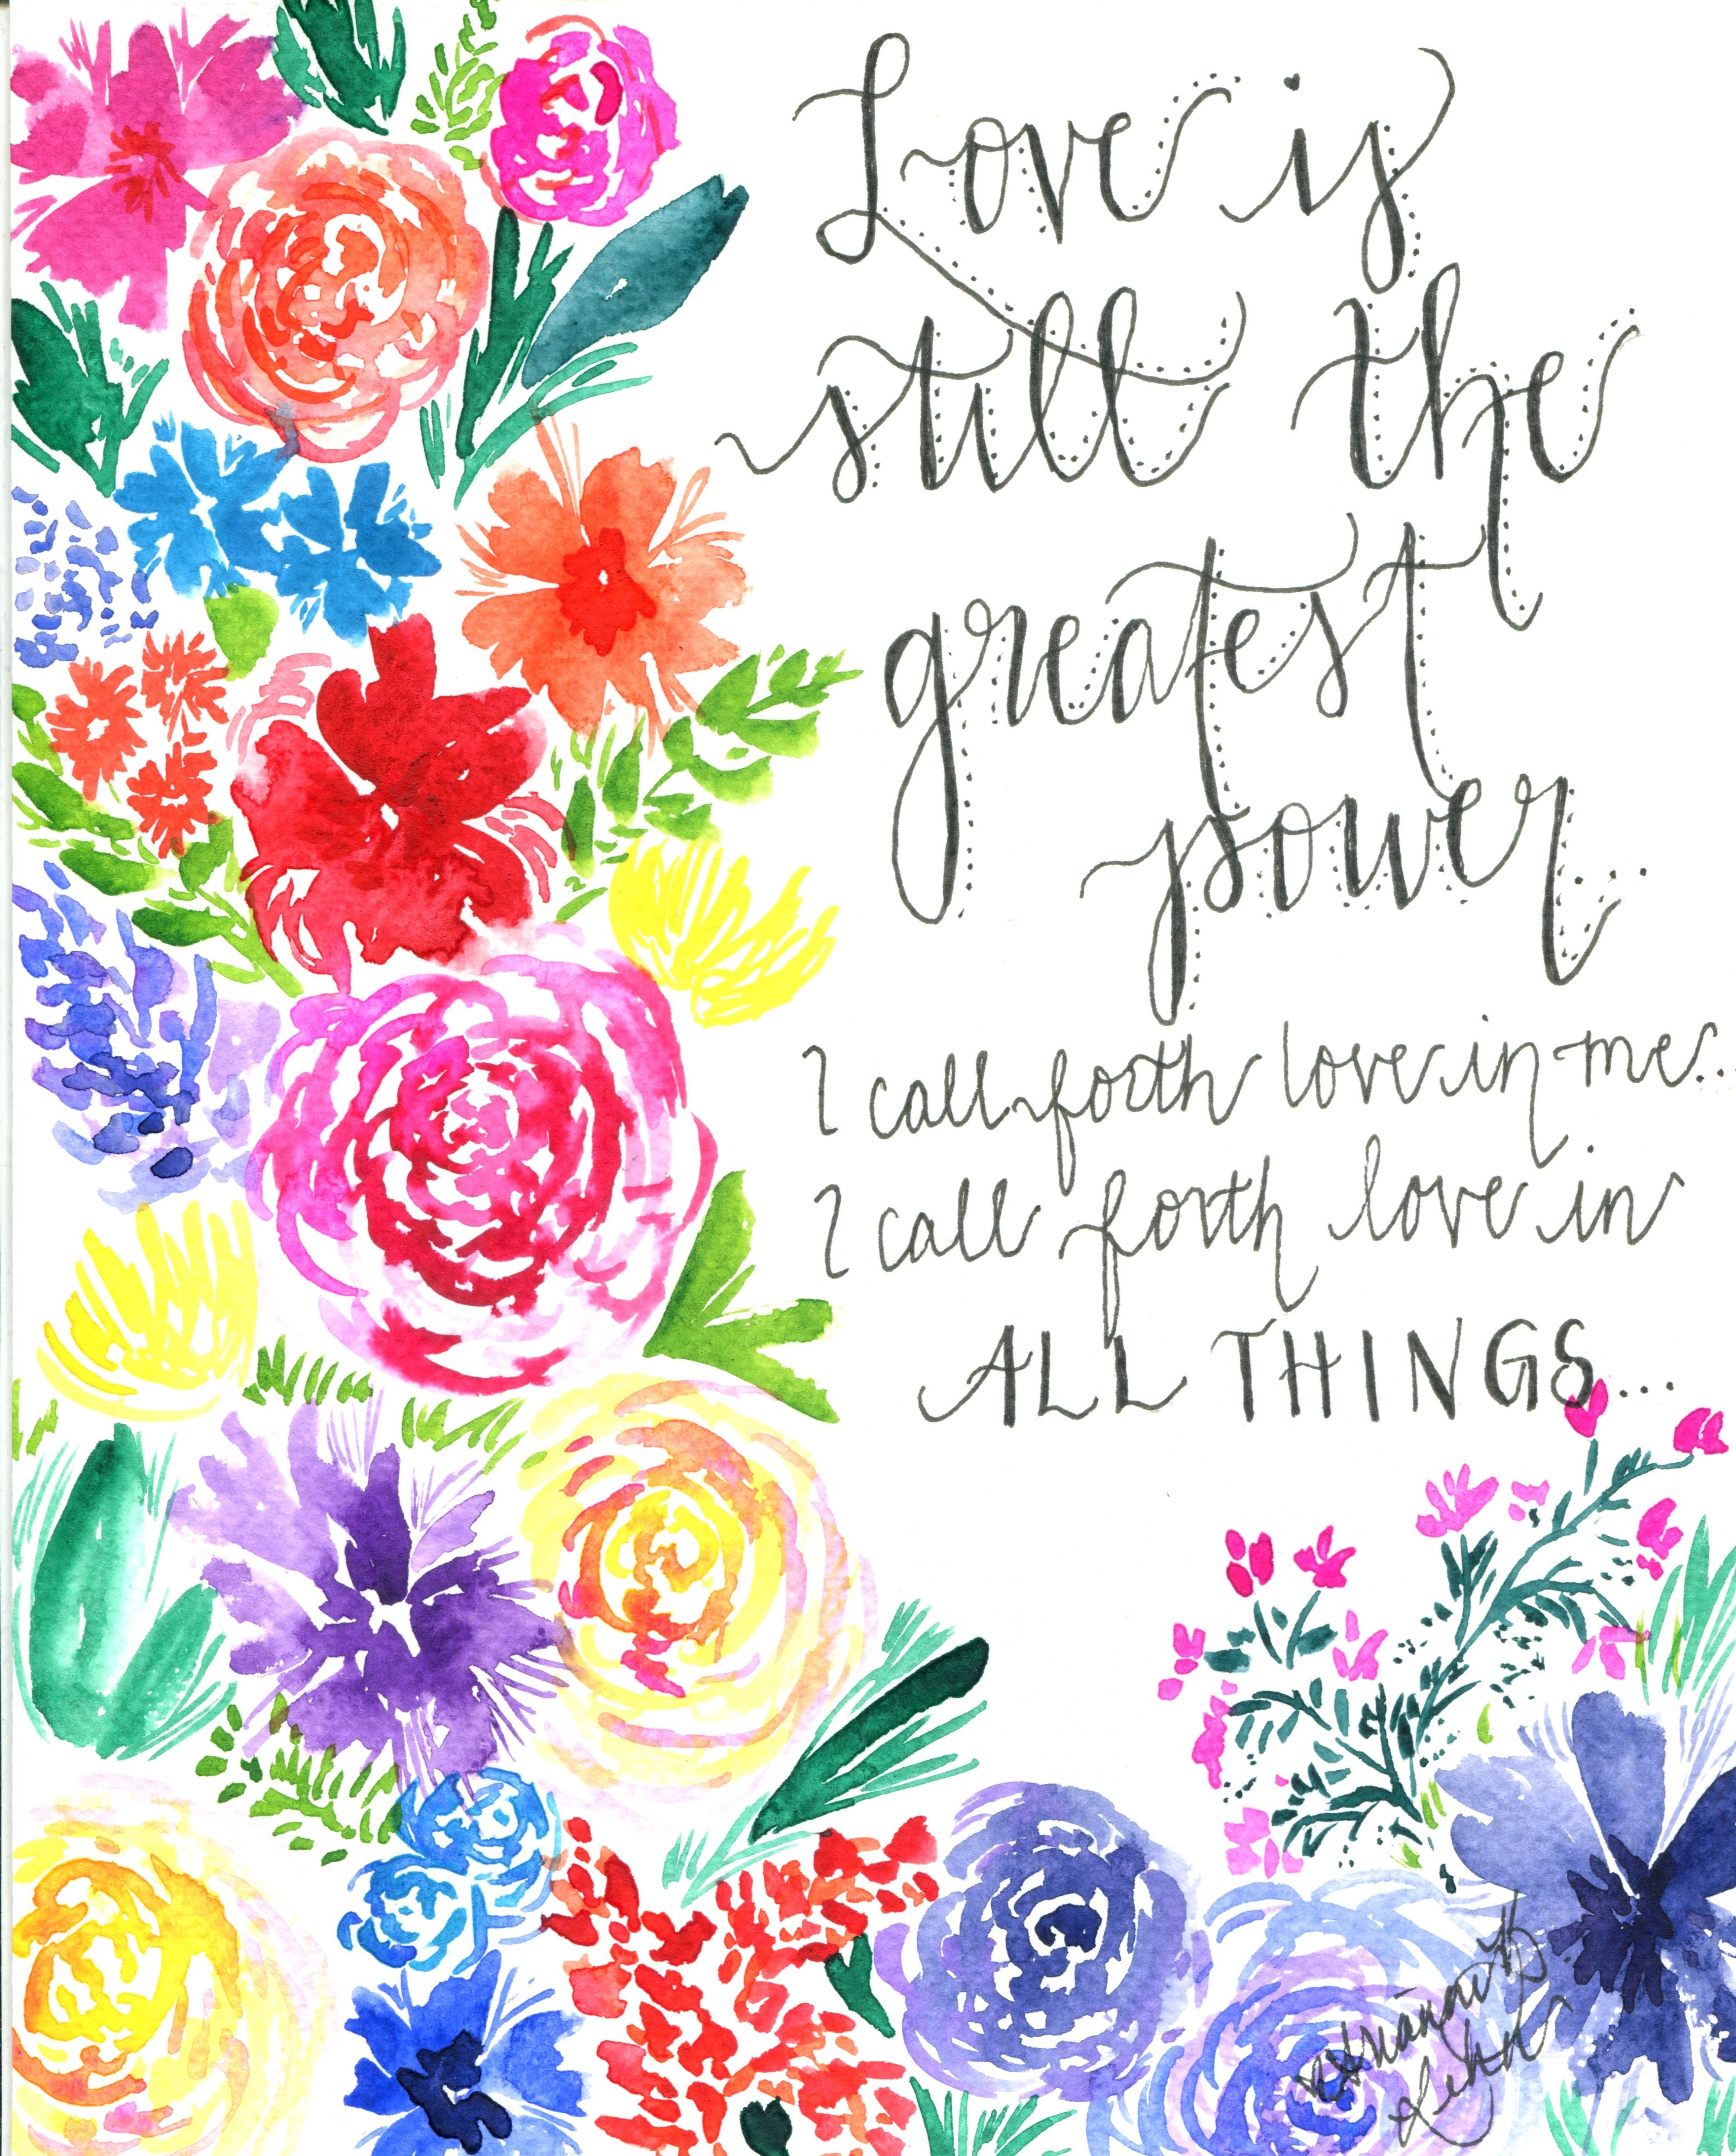 Love is
still the
greatest
power...
I call forth love in me...
I call forth love in
ALL THINGS...
Lehn